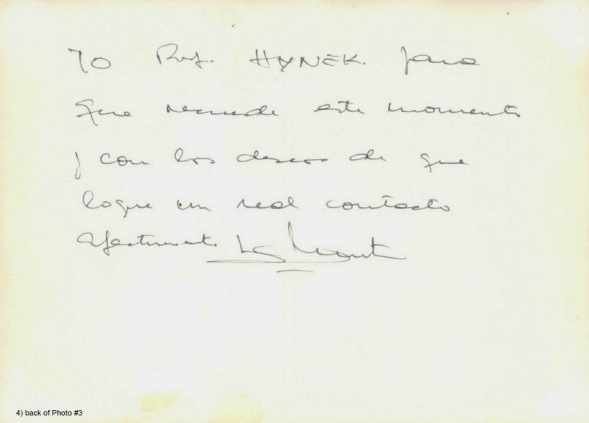 TO Prof. HYNEK. para
que recuerde este momento
y con los deseos de que
logre un real contacto
4) back of Photo #3